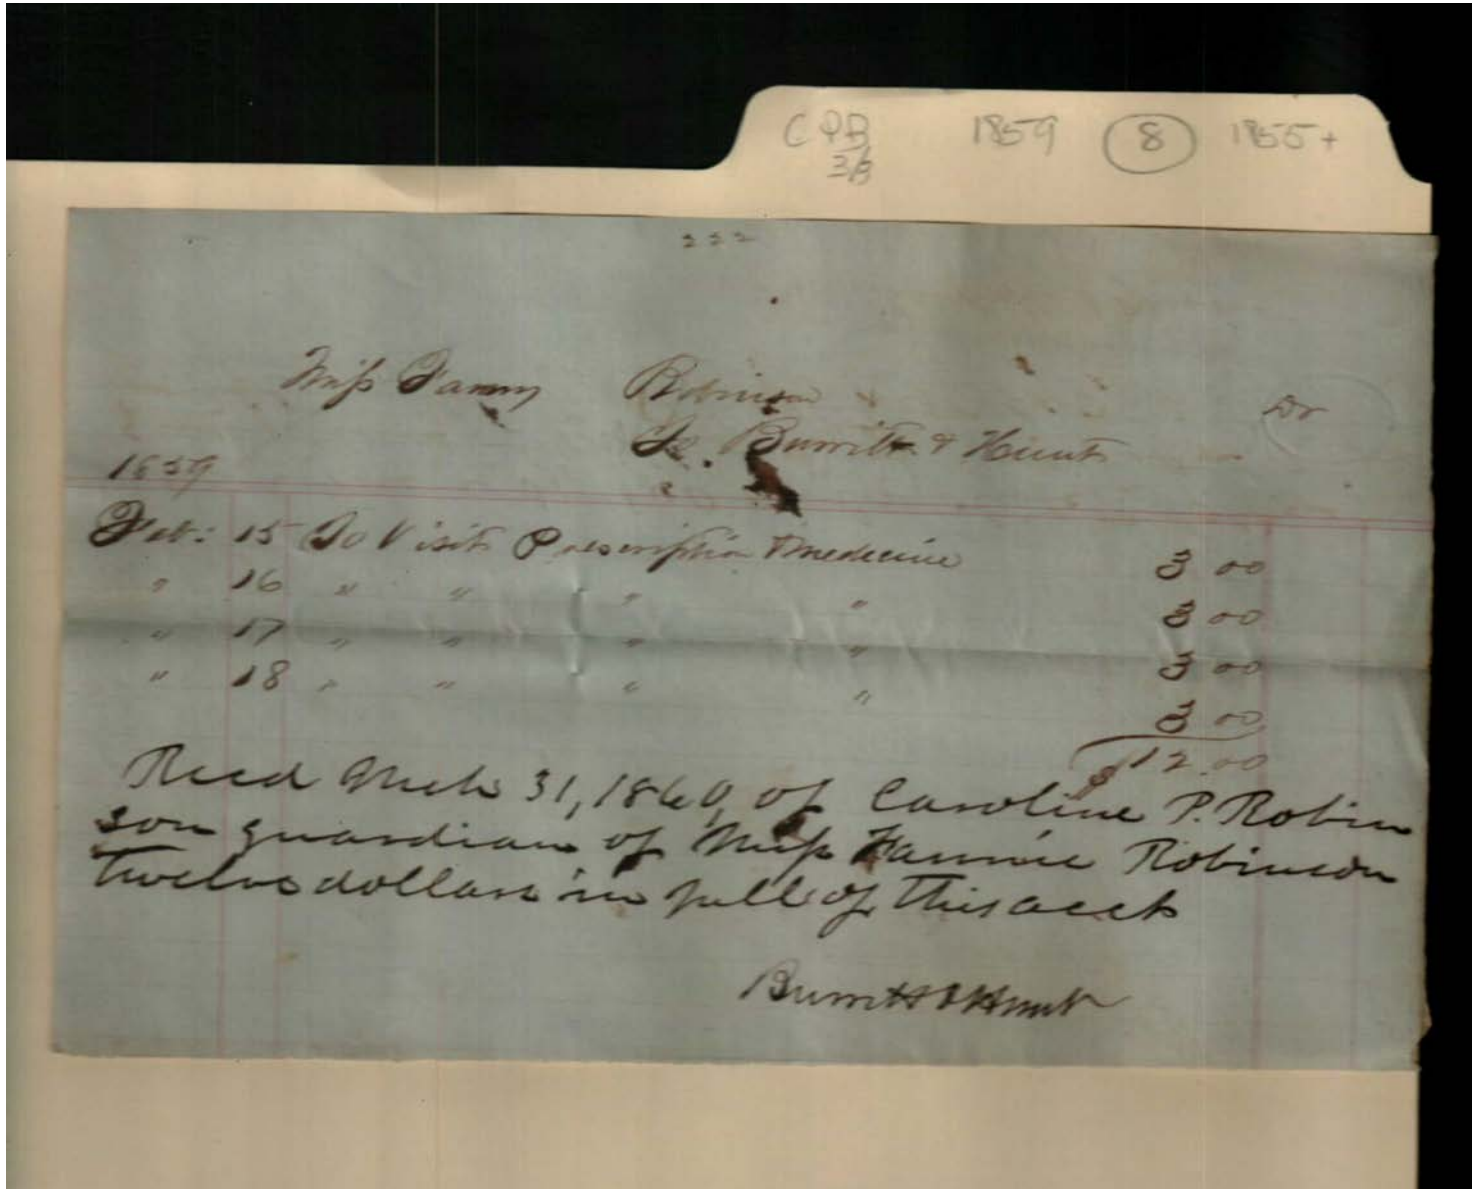 CPB 1859 8 1855+
3/8
222
Miss Fanny Robinson Dr
To Burritt & Hunt
1859
Feb: 15 To Visit Prescription & medicine 3 00
" 16 " " " " 3 00
" 17 " " " " 3 00
" 18 " " " " 3 00
$12.00
Recd Mch 31, 1860, of Caroline P. Robin
son guardian of Miss Fannie Robinson
twelve dollars in full of this acct
Burritt & Hunt